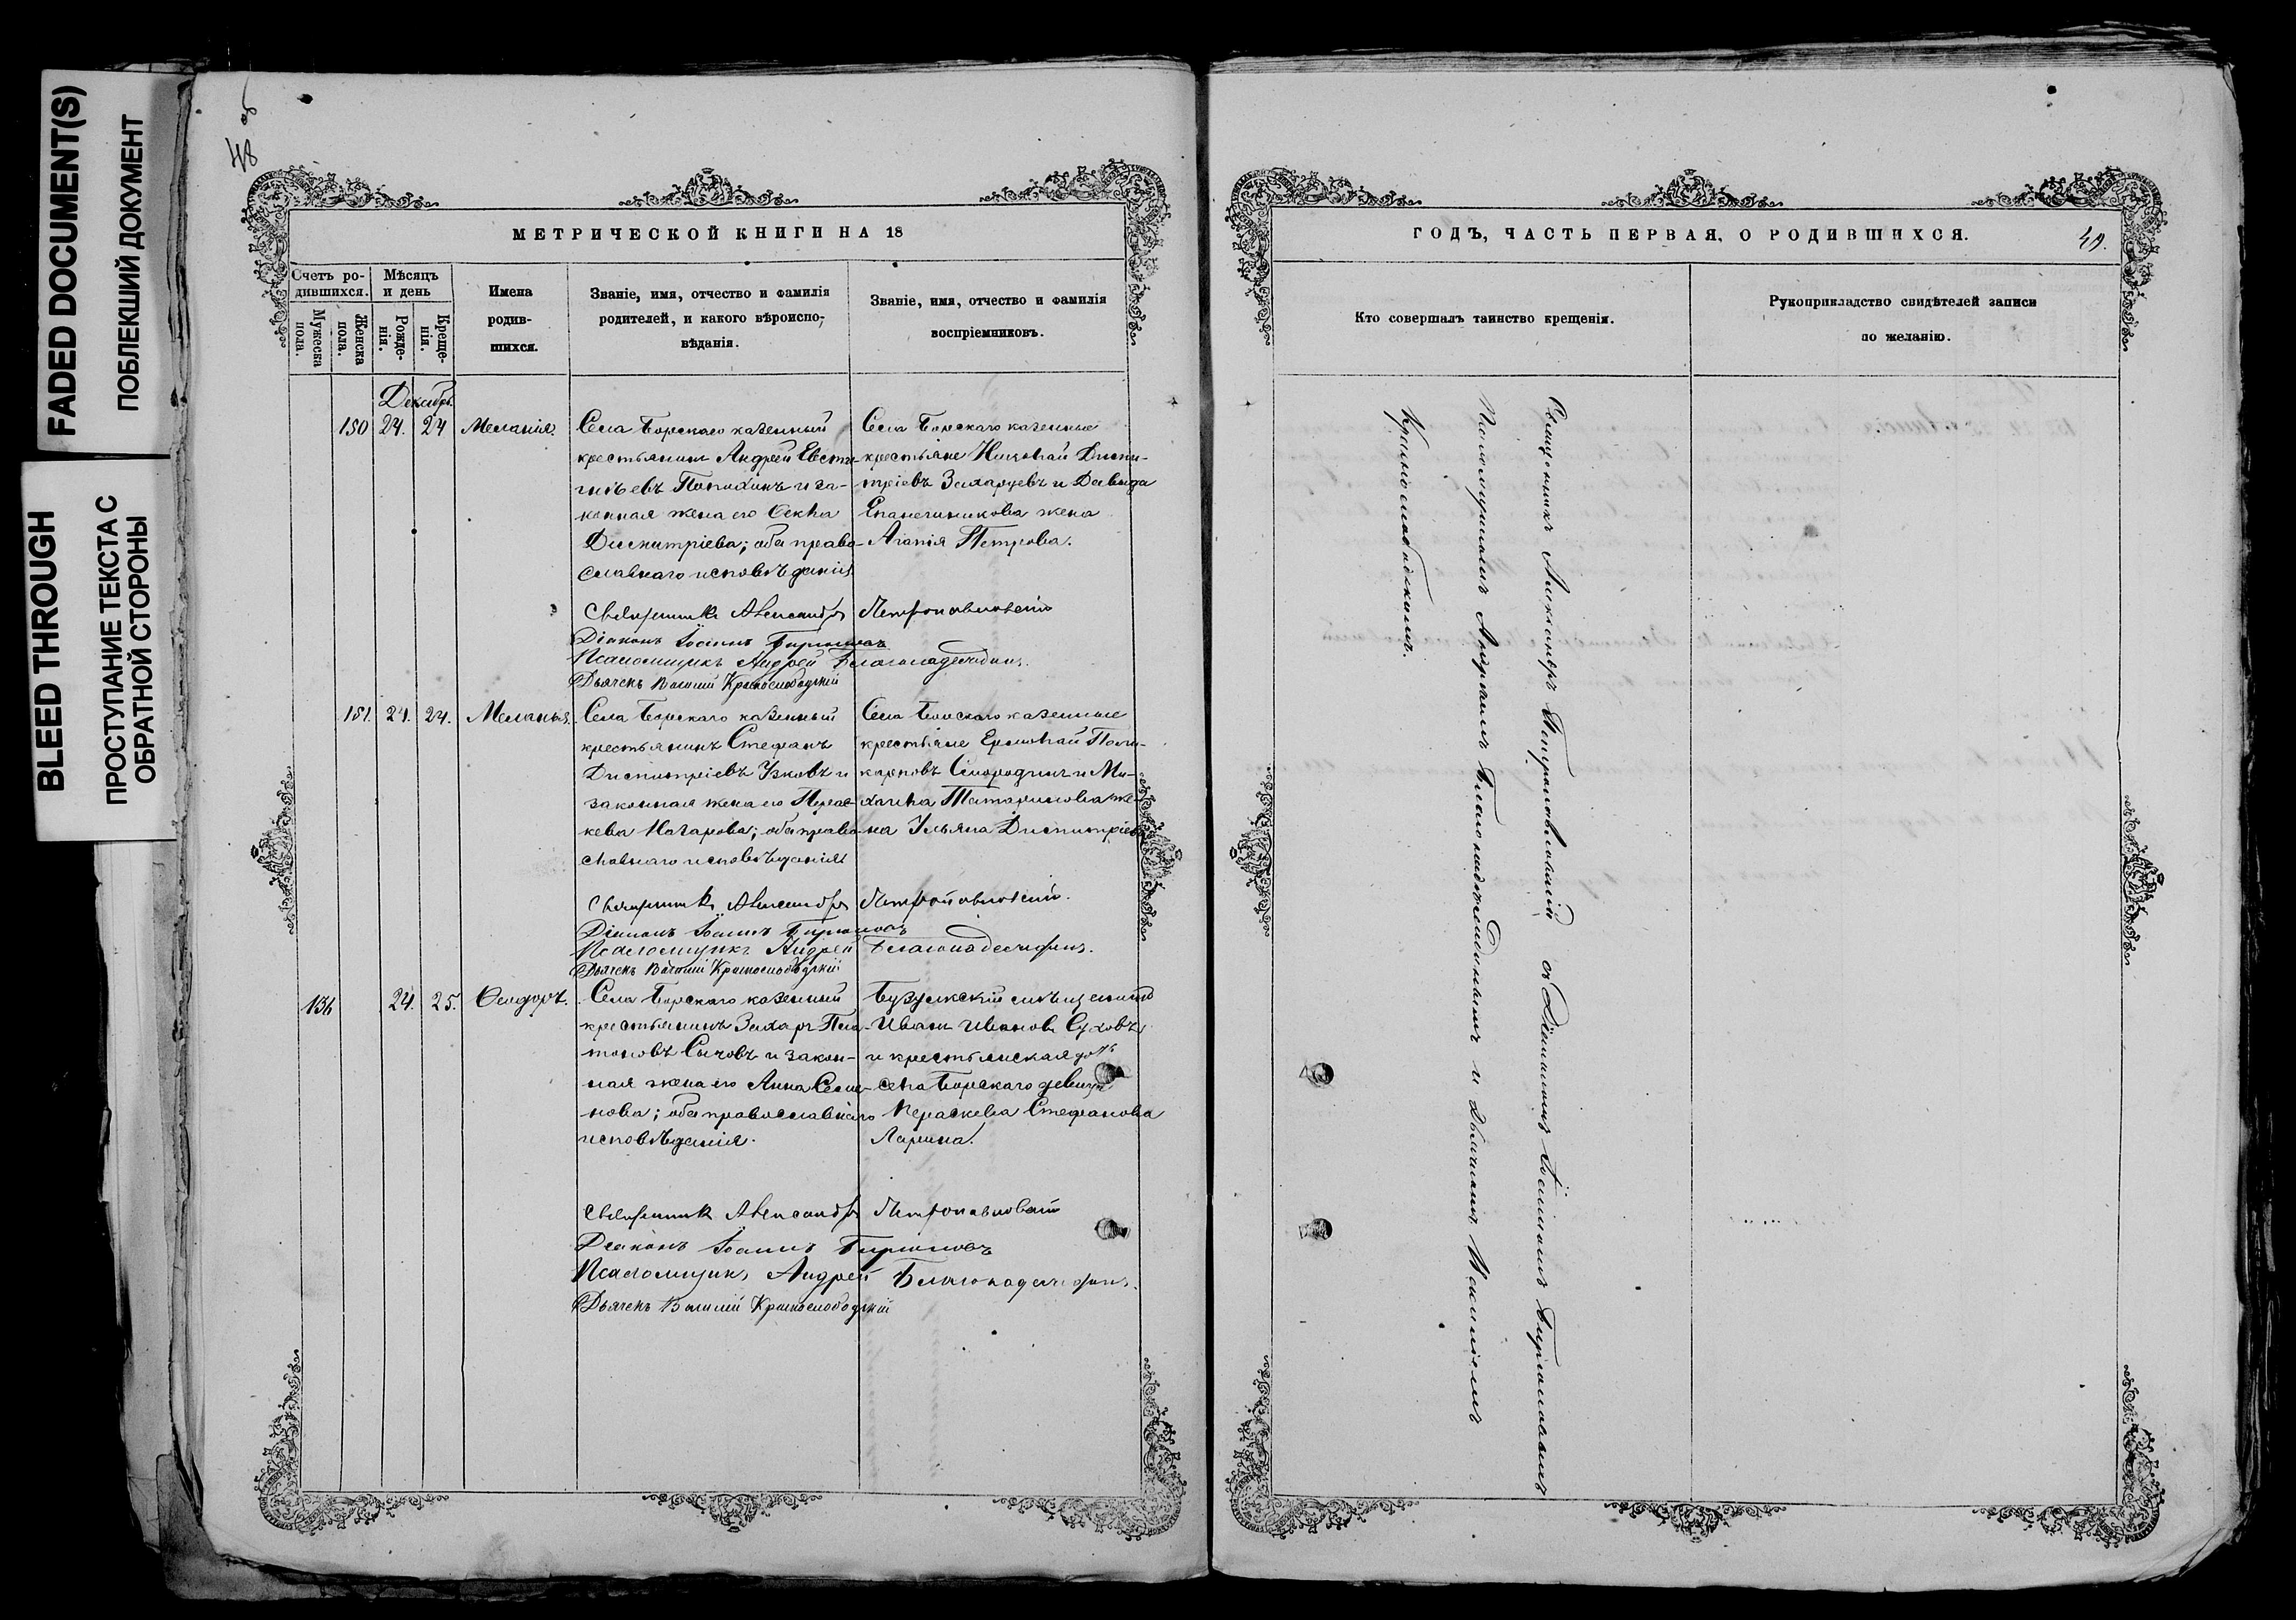 FADED DOCUMENT(S)
ПОБЛЕКШИЙ ДОКУМЕНТ
BLEED THROUGH
ПРОСТУПАНИЕ ТЕКСТА С
ОБРАТНОЙ СТОРОНЫ
48
МЕТРИЧЕСКОЙ КНИГИ НА 18
Счетъ ро-
дившихся.
Мужеска
пола.
Женска
пола.
Мѣсяцъ
и день
Рожде-
нія.
Креще-
нія.
Имена
родив-
шихся.
Званіе, имя, отчество и фамилія
родителей, и какого вѣроиспо-
вѣданія.
Званіе, имя, отчество и фамилія
воспріемниковъ.
Декабрь
150 24. 24 Меланія.
Села Борскаго казенный
крестьянинъ Андрей Евсти-
гнѣевъ и за-
конная жена его Ѳекла
Димитріева; оба право-
славнаго исповѣданія
Села Борскаго казенные
крестьяне Николай Дими-
тріевъ Захарцевъ и Давыда
Епанечникова жена
Агапія Петрова.
Священникъ Александръ Петропавловскій
Діаконъ Іоаннъ Бирюковъ
Псаломщикъ Андрей Благонадеждинъ.
Дьячекъ Василій Краснослободскій
151. 24. 24. Меланья.
Села Борскаго казенный
крестьянинъ Стефанъ
Димитріевъ Узковъ и
законная жена его Парас-
кева Назарова; оба право-
славнаго исповѣданія
Села Борскаго казенные
крестьяне Ермолай Поли-
карповъ Смородинъ и Ми-
хаила Татаринова же-
на Ульяна Димитріева
Священникъ Александръ Петропавловскій.
Діаконъ Іоаннъ Бирюковъ
Псаломщикъ Андрей Благонадеждинъ.
Дьячекъ Василій Краснослободскій
136 24. 25. Ѳеодоръ.
Села Борскаго казенный
крестьянинъ Захаръ Пла-
тоновъ Сычовъ и закон-
ная жена его Анна Семе-
нова; оба православнаго
исповѣданія.
Бузулкскій мѣщанинъ
Иванъ Ивановъ Суховъ
и крестьянская дочь
села Борскаго девица
Параскева Стефанова
Ларина.
Священникъ Александръ Петропавловскій
Діаконъ Іоаннъ Бирюковъ
Псаломщикъ Андрей Благонадеждинъ.
Дьячекъ Василій Краснослободскій
ГОДЪ, ЧАСТЬ ПЕРВАЯ, О РОДИВШИХСЯ.
49.
Кто совершалъ таинство крещенія.
Рукоприкладство свидѣтелей записи
по желанію.
Священникъ Александръ Петропавловскій съ Діакономъ Іоанномъ Бирюковымъ
Псаломщикомъ Андреемъ Благонадеждинымъ и Дьячкомъ Василіемъ
Краснослободскимъ.